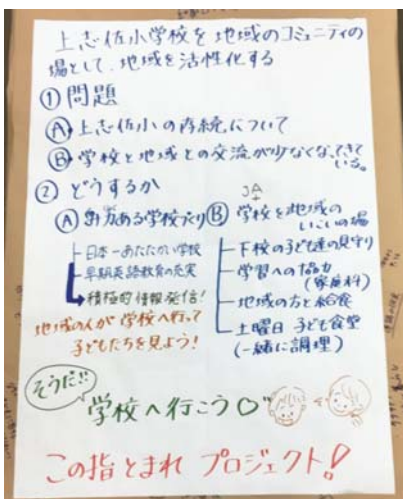 上志佐小学校を地域のコミュニティの
場として、地域を活性化する
① 問題
Ⓐ 上志佐小の存続について
Ⓑ 学校と地域との交流が少なくなってきて
いる。
② どうするか
Ⓐ 魅力ある学校づくり
日本一あたたかい学校
早期英語教育の充実
積極的情報発信!
地域の人が学校へ行って
子どもたちを見よう!
JA
Ⓑ 学校を地域の
いこいの場
下校の子ども達の見守り
学習への協力
(家庭科)
地域の方と給食
土曜日 子ども食堂
(一緒に調理)
そうだ!!
学校へ行こう♡
この指とまれ プロジェクト!